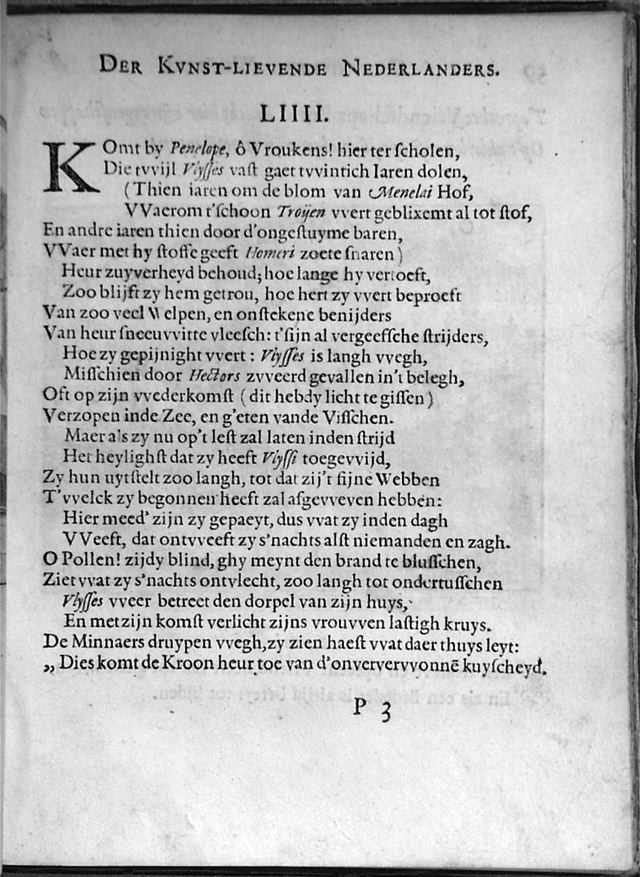 DER KVNST-LIEVENDE NEDERLANDERS.
LIIII.
KOmt by Penelope, ô Vroukens! hier ter scholen,
Die tvvijl Vlysses vast gaet tvvintich Iaren dolen,
(Thien iaren om de blom van Menelai Hof,
VVaerom t'schoon Troijen vvert geblixemt al tot stof,
En andre iaren thien door d'ongestuyme baren,
VVaer met hy stoffe geeft Homeri zoete snaren)
Heur zuyverheyd behoud; hoe lange hy vertoeft,
Zoo blijft zy hem getrou, hoe hert zy vvert beproeft
Van zoo veel Welpen, en onstekene benijders
Van heur sneeuvvitte vleesch: t'sijn al vergeefsche strijders,
Hoe zy gepijnight vvert: Vlysses is langh vvegh,
Misschien door Hectors zvveerd gevallen in't belegh,
Oft op zijn vvederkomst (dit hebdy licht te gissen)
Verzopen inde Zee, en g'eten vande Visschen.
Maer als zy nu op't lest zal laten inden strijd
Het heylighst dat zy heeft Vlyssi toegevvijd,
Zy hun uytstelt zoo langh, tot dat zij't sijne Webben
T'vvelck zy begonnen heeft zal afgevveven hebben:
Hier meed' zijn zy gepaeyt, dus vvat zy inden dagh
VVeeft, dat ontvveeft zy s'nachts alst niemanden en zagh.
O Pollen! zijdy blind, ghy meynt den brand te blusschen,
Ziet vvat zy s'nachts ontvlecht, zoo langh tot ondertusschen
Vlysses vveer betreet den dorpel van zijn huys,
En met zijn komst verlicht zijns vrouvven lastigh kruys.
De Minnaers druypen vvegh, zy zien haest vvat daer thuys leyt:
„ Dies komt de Kroon heur toe van d'onververvvonnē kuyscheyd.
P 3